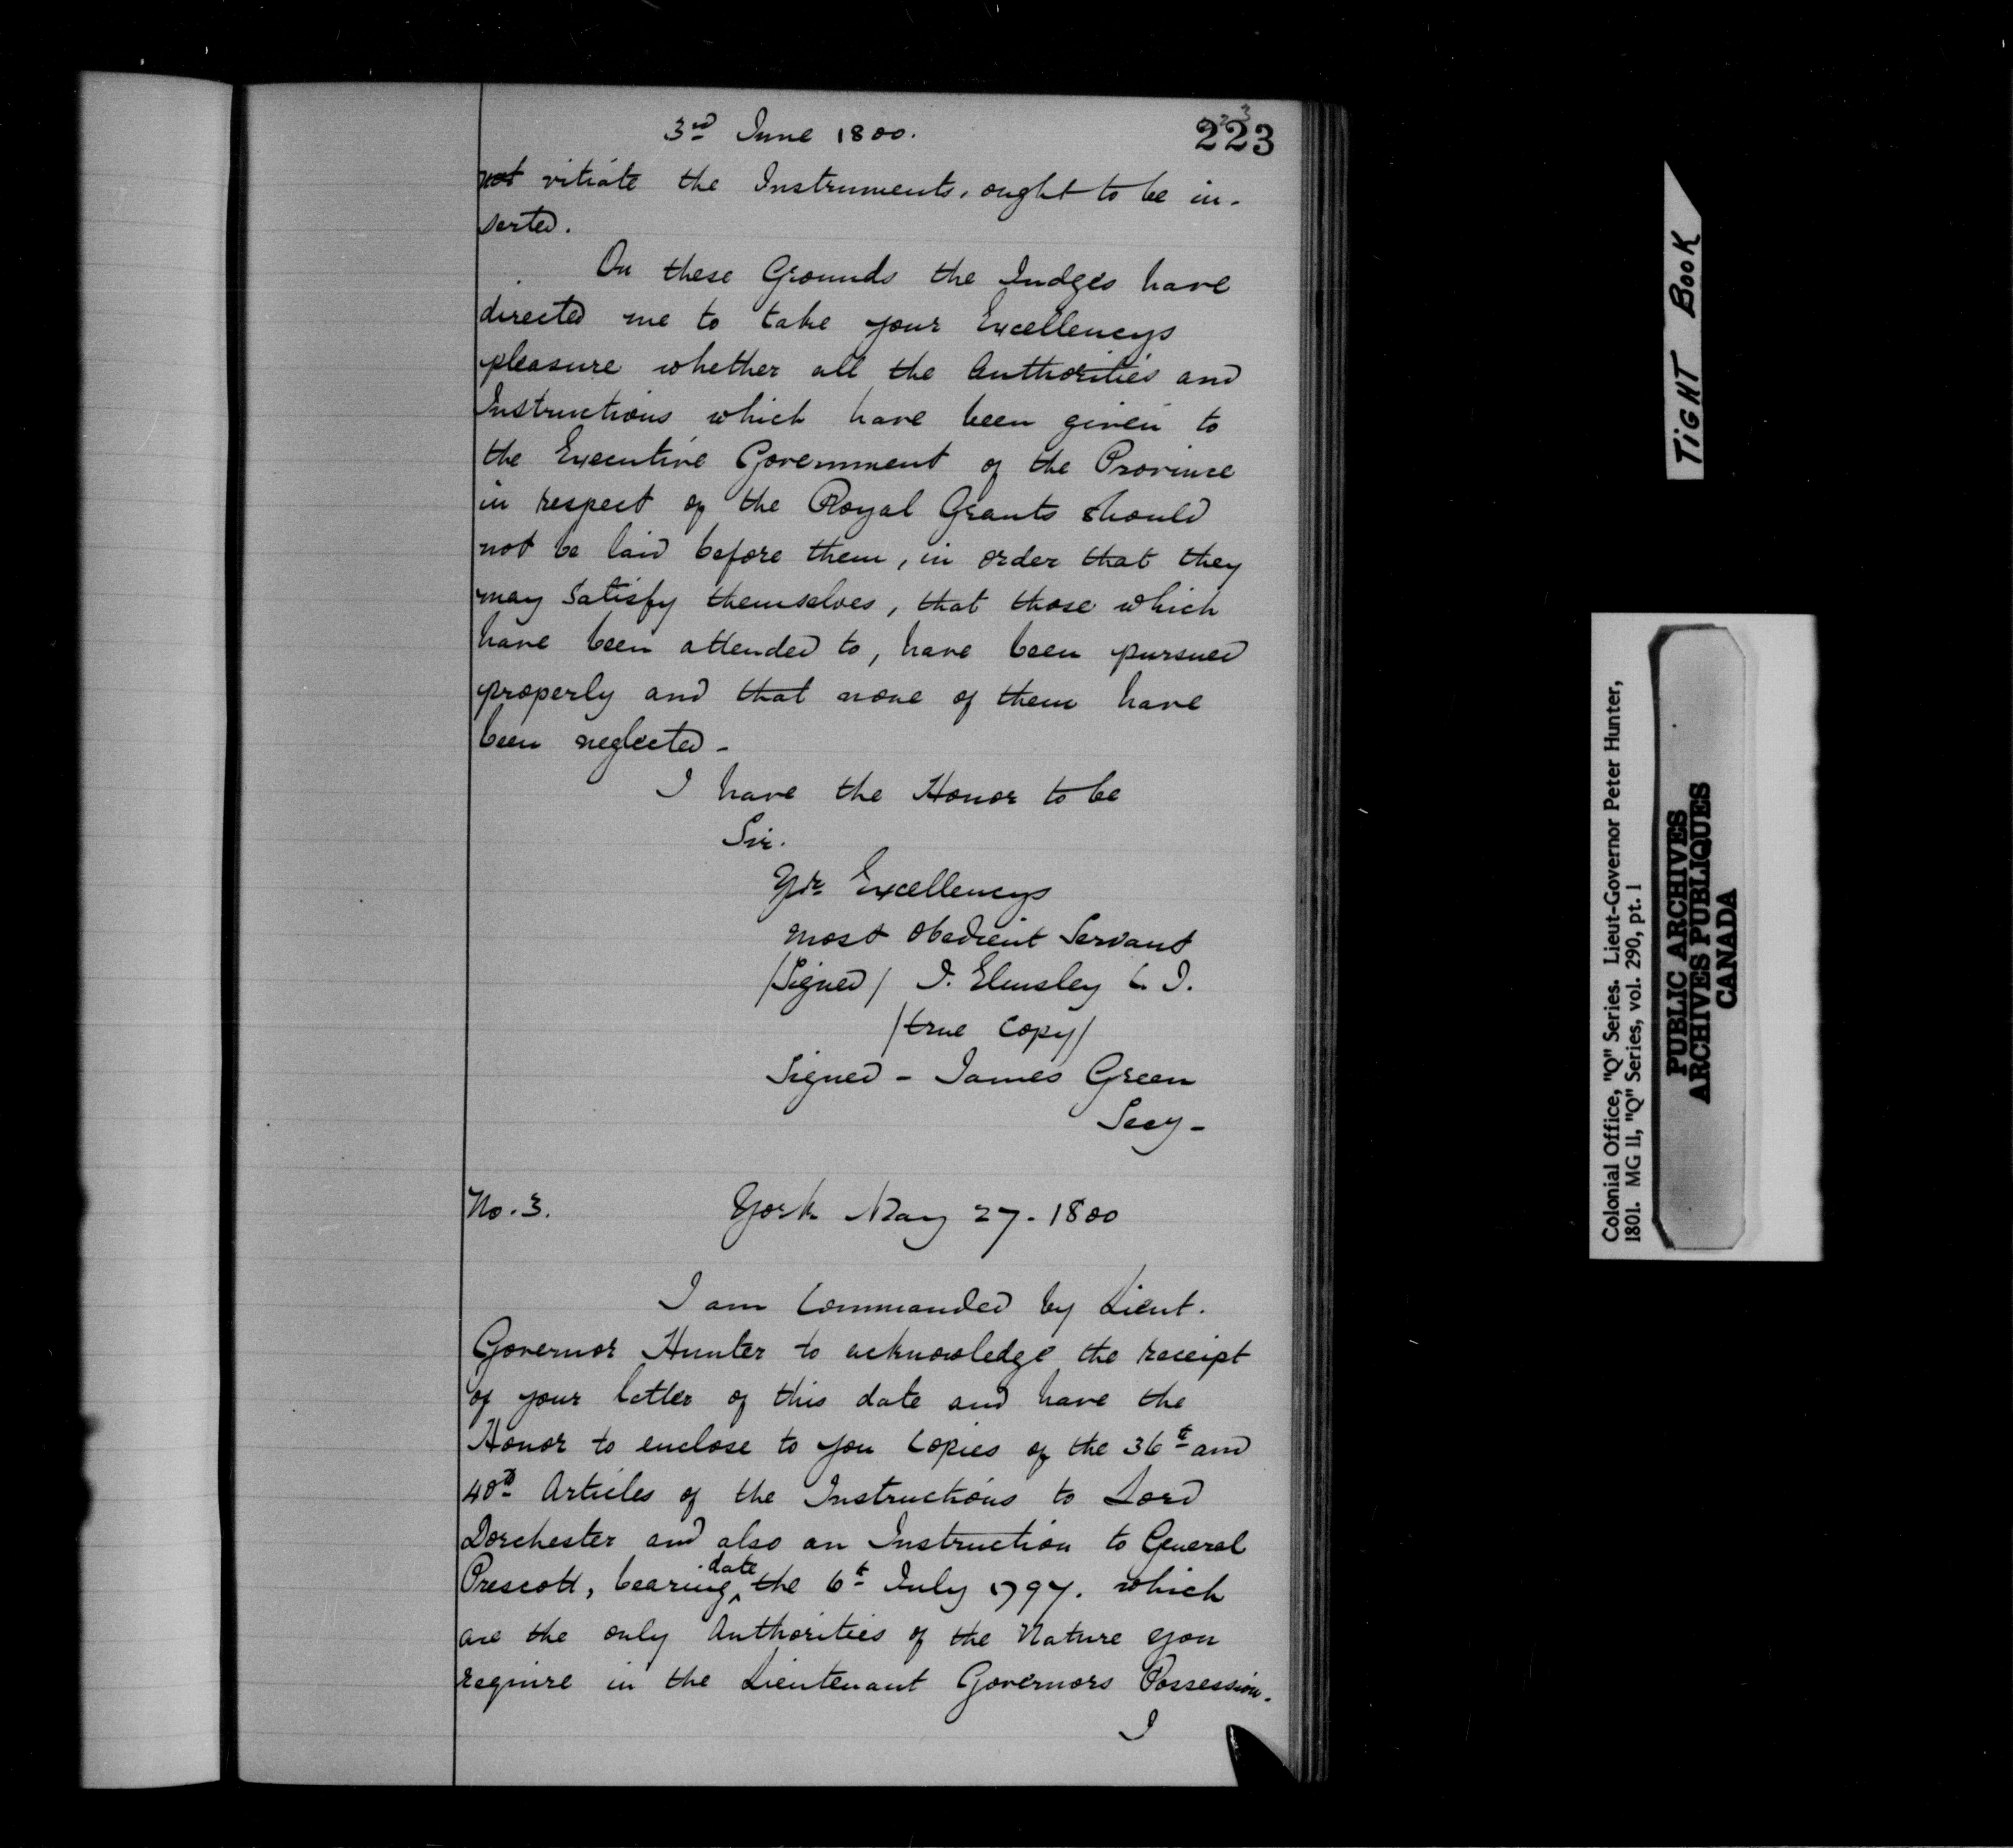 3rd June 1800.
223
not vitiate the Instruments, ought to be in-
serted.
On these Grounds the Judges have
directed me to take your Excellencys
pleasure whether all the Authorities and
Instructions which have been given to
the Executive Government of the Province
in respect of the Royal Grants should
not be laid before them, in order that they
may satisfy themselves, that those which
have been attended to, have been pursued
properly and that none of them have
been neglected -
I have the Honor to be
Sir.
Yr Excellencys
most obedient Servant
/Signed/ J. Elmsley C. J.
/true Copy/
Signed - James Green
Secy -
No. 3. York May 27. 1800
I am Commanded by Lieut.
Governor Hunter to acknowledge the receipt
of your letter of this date and have the
Honor to enclose to you Copies of the 36t and
40th Articles of the Instructions to Lord
Dorchester and also an Instruction to General
Prescott, bearing date the 6t July 1797. which
are the only Authorities of the Nature you
require in the Lieutenant Governors Possession.
I
TIGHT BOOK
Colonial Office, "Q" Series. Lieut-Governor Peter Hunter,
1801. MG 11, "Q" Series, vol. 290, pt. 1
PUBLIC ARCHIVES
ARCHIVES PUBLIQUES
CANADA